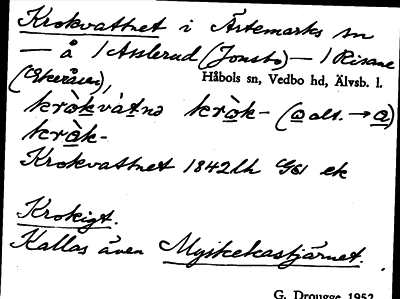 Krokvattnet i Ärtemarks sn
— å 1 Asslerud (Jonsbo) — 1 Risane
(Ekeråsen),
Håbols sn, Vedbo hd, Älvsb. l.
kròkvàtnə kròk- (o alt. → a)
kràk-
Krokvattnet 1842 lh G61 ek
Krokigt.
Kallas även Myskekastjärnet.
G. Drougge 1952